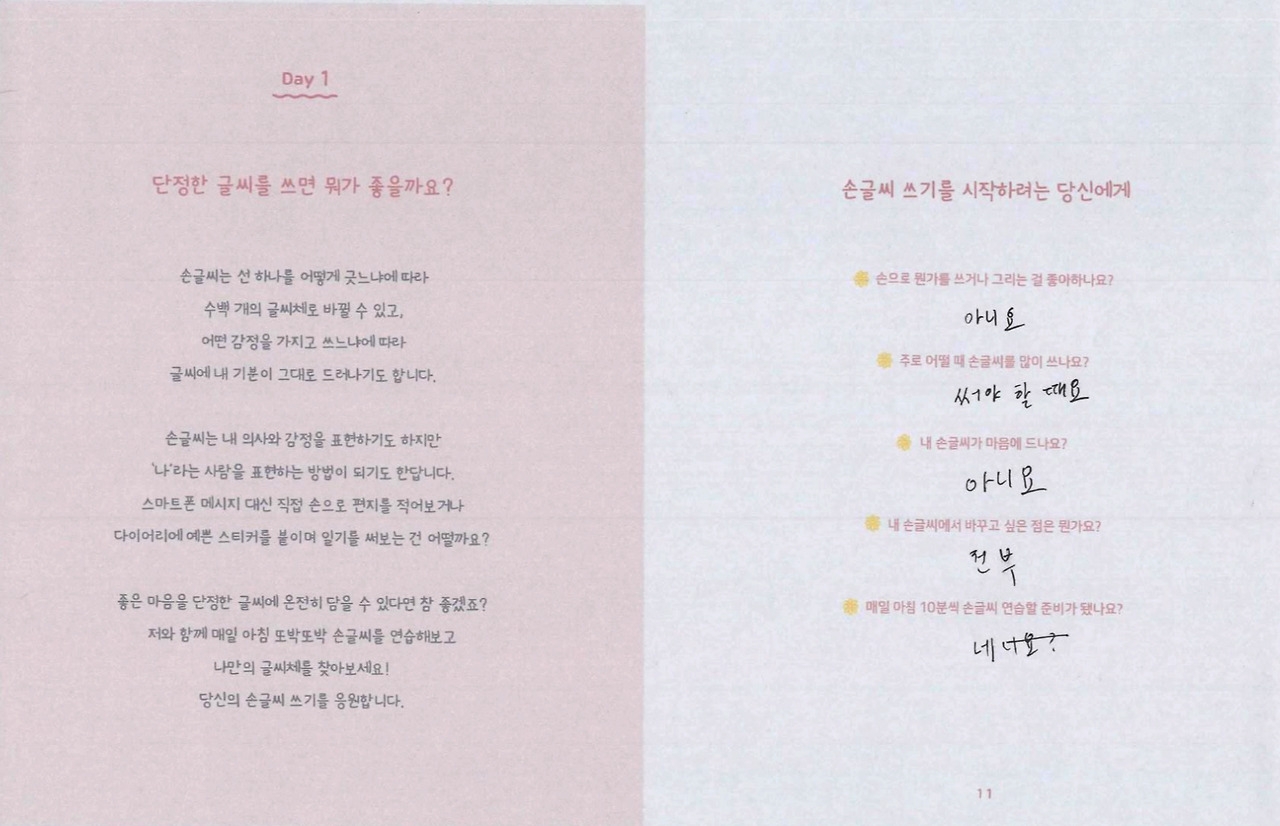 Day 1
단정한 글씨를 쓰면 뭐가 좋을까요?
손글씨는 선 하나를 어떻게 긋느냐에 따라
수백 개의 글씨체로 바뀔 수 있고,
어떤 감정을 가지고 쓰느냐에 따라
글씨에 내 기분이 그대로 드러나기도 합니다.
손글씨는 내 의사와 감정을 표현하기도 하지만
'나'라는 사람을 표현하는 방법이 되기도 한답니다.
스마트폰 메시지 대신 직접 손으로 편지를 적어보거나
다이어리에 예쁜 스티커를 붙이며 일기를 써보는 건 어떨까요?
좋은 마음을 단정한 글씨에 온전히 담을 수 있다면 참 좋겠죠?
저와 함께 매일 아침 또박또박 손글씨를 연습해보고
나만의 글씨체를 찾아보세요!
당신의 손글씨 쓰기를 응원합니다.
손글씨 쓰기를 시작하려는 당신에게
손으로 뭔가를 쓰거나 그리는 걸 좋아하나요?
아니요
주로 어떨 때 손글씨를 많이 쓰나요?
써야 할 때요
내 손글씨가 마음에 드나요?
아니요
내 손글씨에서 바꾸고 싶은 점은 뭔가요?
전부
매일 아침 10분씩 손글씨 연습할 준비가 됐나요?
네
11